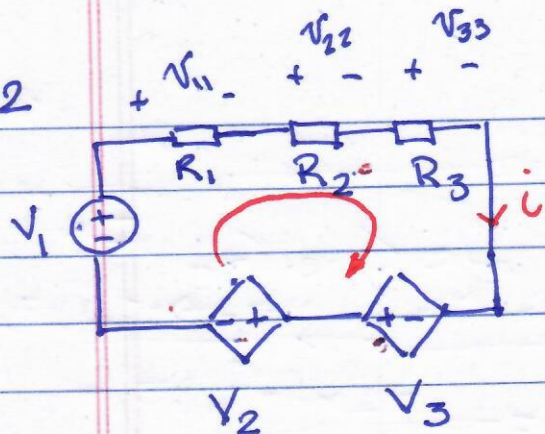 V₁₁ V₂₂ V₃₃
2 + - + - + -
R₁ R₂ R₃
V₁ + - i
- + + -
V₂ V₃